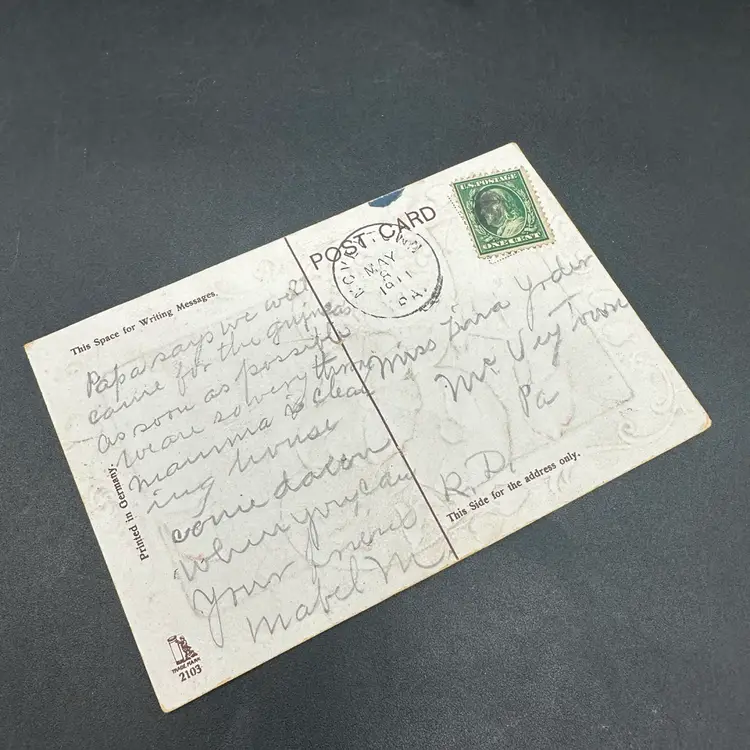 This Space for Writing Messages.
Papa says we will
come for the guineas
as soon as possible
we are so very
mamma is clean
ing house
come down
when you can
your friend
Mabel M
Printed in Germany.
TRADE MARK
2103
POST CARD
MAY
1911
PA.
U.S. POSTAGE
ONE CENT
Miss Zora Yoder
Mc Vey Town
Pa
R.D.
This Side for the address only.